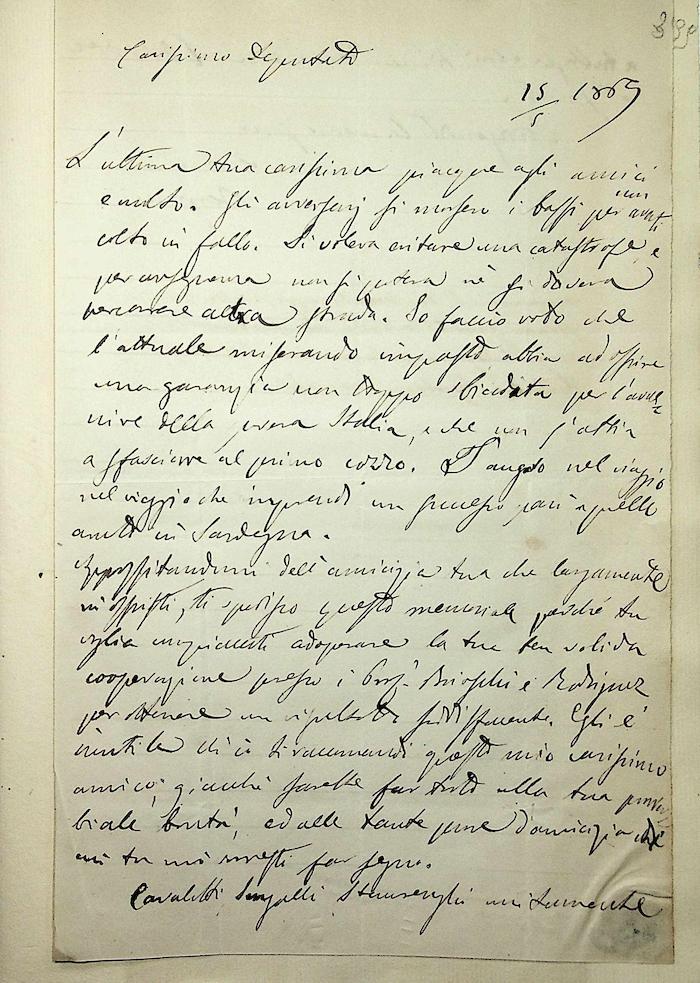 Carissimo Deputato
15/5 1869
L'ultima tua carissima piacque agli amici
e molto. Gli avversarj si morsero i baffi per non averti
colto in fallo. Si voleva evitare una catastrofe, e
per conseguenza non si poteva nè si doveva
percorrere altra strada. Io faccio voto che
l'attuale miserando impasto abbia ad offrire
una garanzia non troppo sbiadata per l'avve=
nire della povera Italia, e che non s'abbia
a sfasciare al primo cozzo. T'auguro nel viaggio
nel viaggio che imprendi un successo pari a quello
avuto in Sardegna.
dell'amicizia tua che largamente
m'offristi, ti questo memoriale perché tu
voglia adoperare la tua ben valida
cooperazione presso i Prof. Brioschi e Rodriguez
per ottenere un risultato soddisfacente. Egli è
inutile ch'io ti raccomandi questo mio carissimo
amico, giacchè sarebbe far torto alla tua prover
biale bontà, ed alle tante prove d'amicizia di
cui tu mi volesti far segno.
Cavaletti unitamente